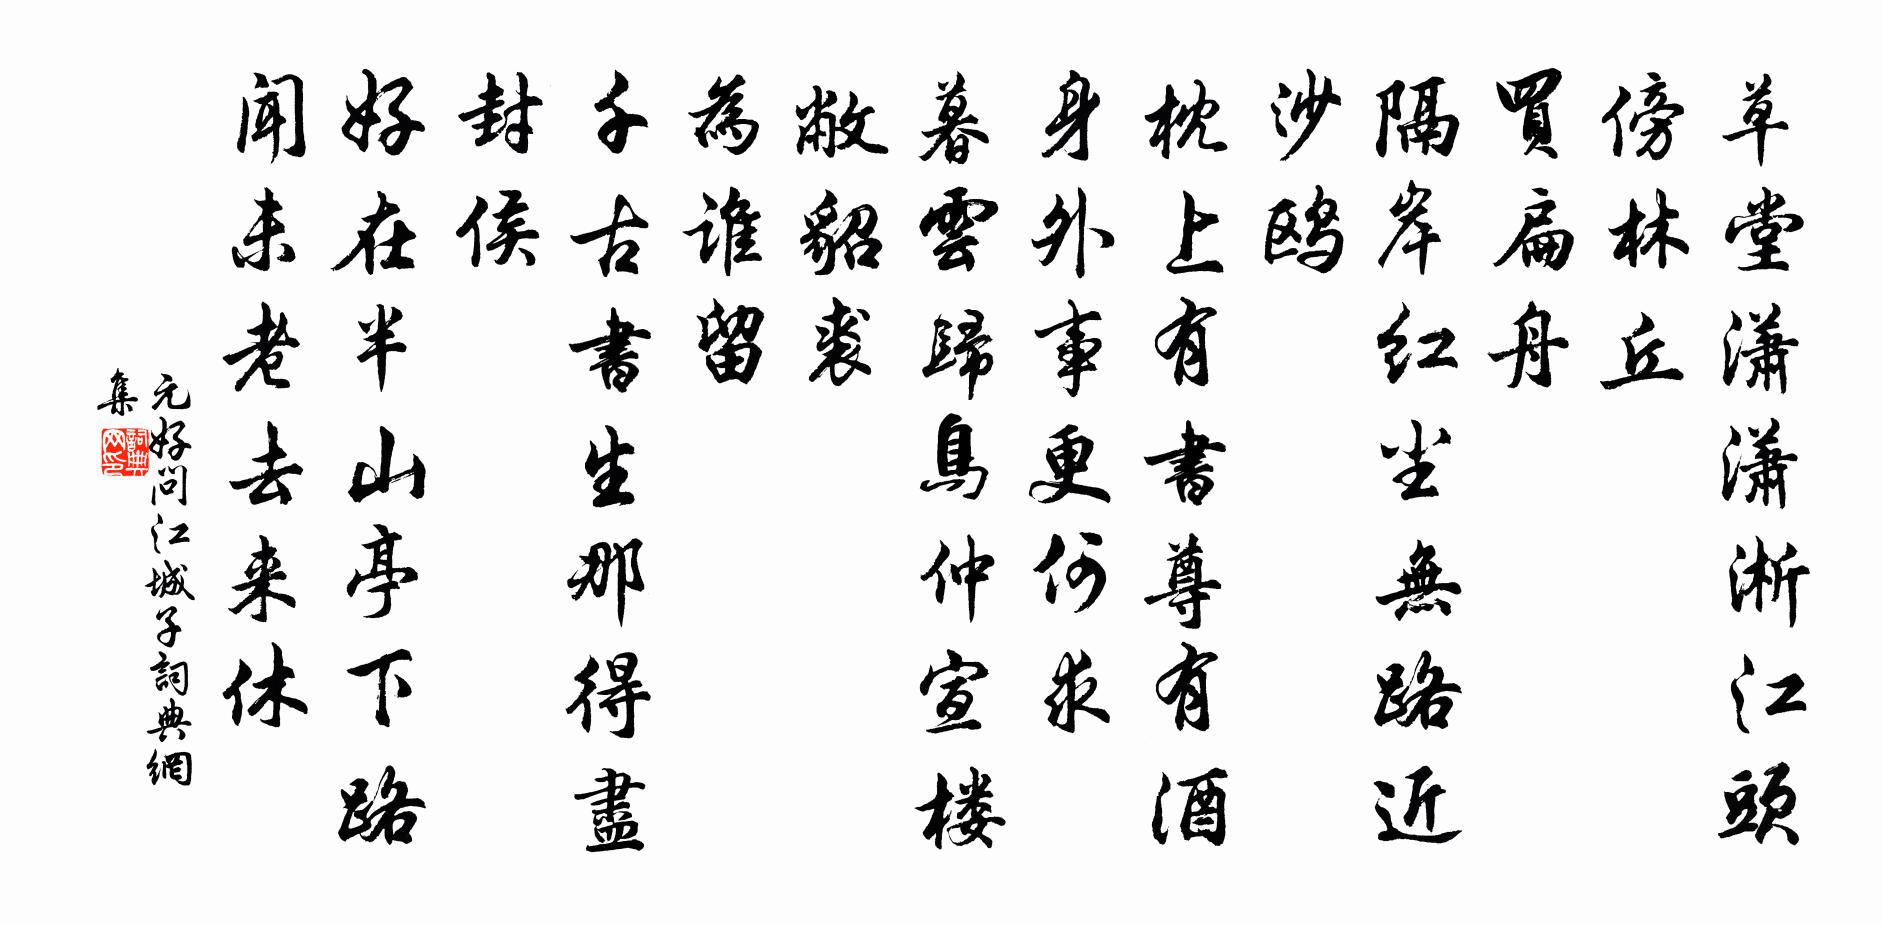 草堂瀟瀟淅江頭
傍林丘
買扁舟
隔岸红尘無路近
沙鸥
枕上有書尊有酒
身外事更何求
暮雲歸鳥仲宣楼
敝貂裘
為誰留
千古書生那得盡
封侯
好在半山亭下路
闻未老去来休
元好问江城子詞典網
集
詞典网印